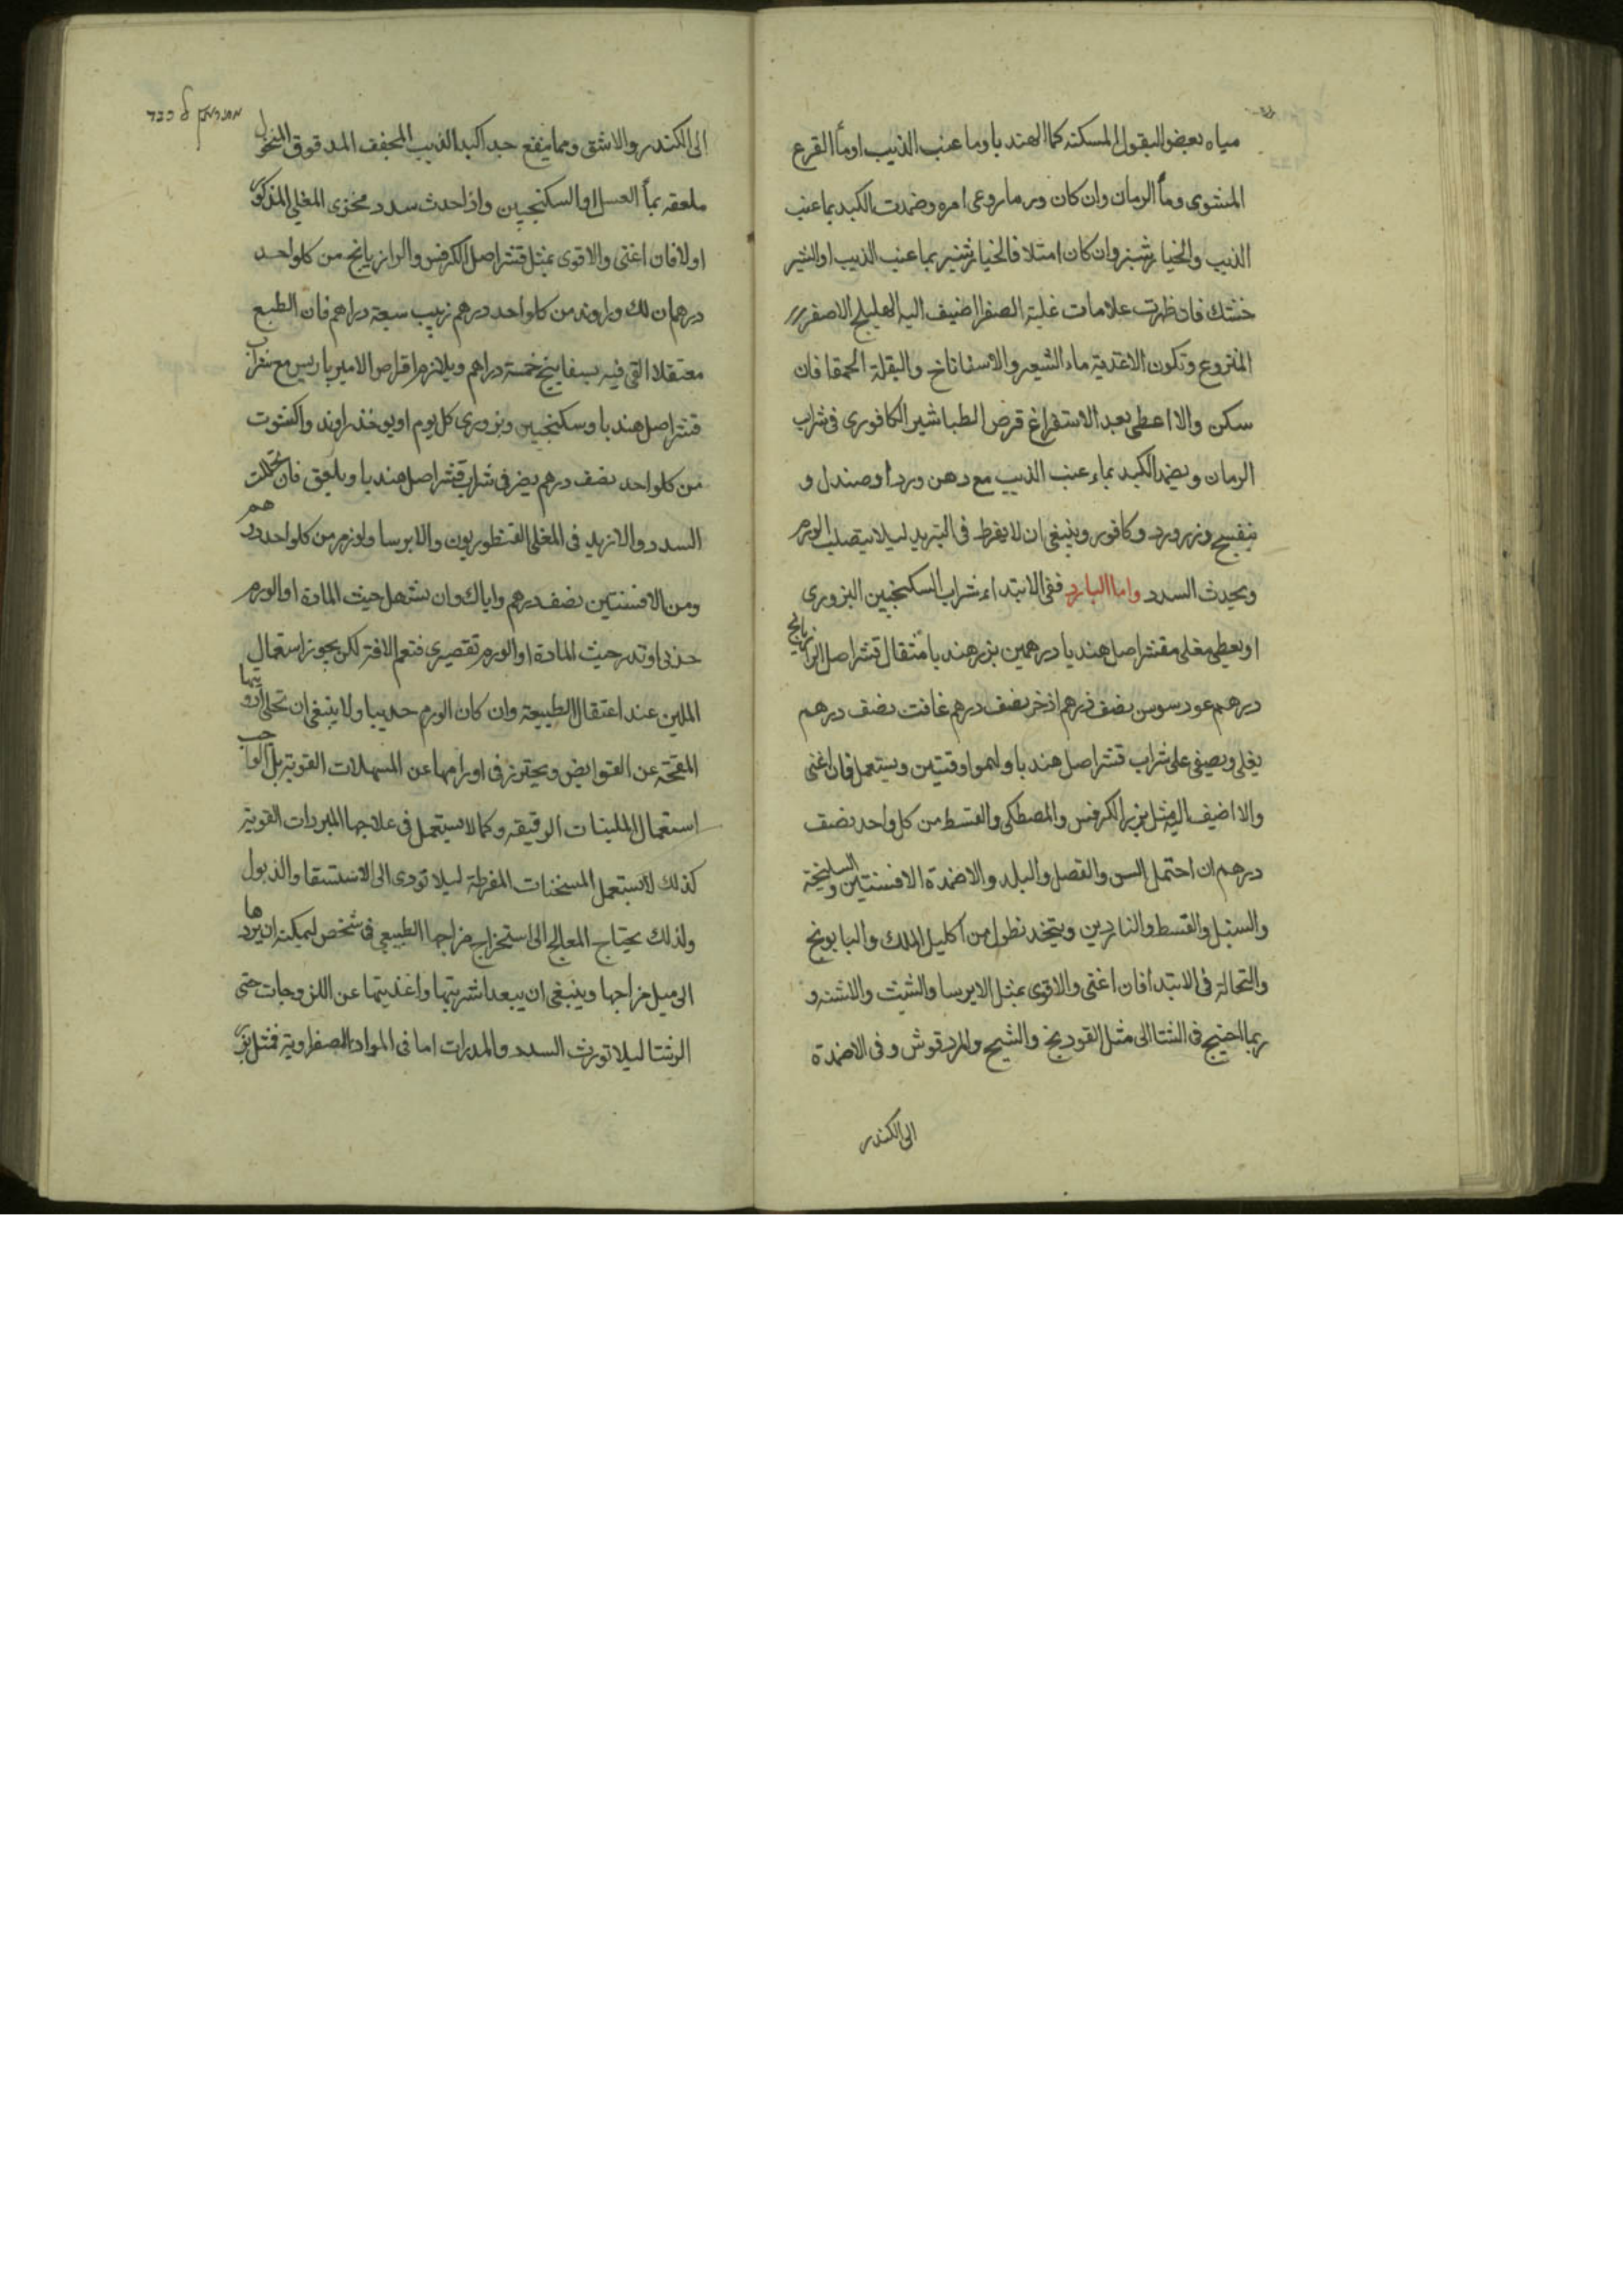 مياه بعض البقول المسكنه كما الهندبا وما عنب الذيب او ما القرع
المشوى وما الرمان وان كان ورما روعى امره وضمدت الكبد بما عنب
الذيب والخيار شنبر وان كان امتلا فالخيار شنبر بما عنب الذيب او الشير
خشك فان ظهرت علامات غلبة الصفرا اضيف اليه الهليلج الاصفر
المنزوع وتكون الاغذية ماء الشعير والاسفاناخ والبقلة الحمقا فان
سكن والا اعطى بعد الاستفراغ قرص الطباشير الكافورى فى شراب
الرمان ويضمد الكبد بماء عنب الذيب مع دهن ورد او صندل و
بنفسج وزرورد وكافور وينبغى ان لا يفرط فى التبريد ليلا يتصلب الورم
ويحدث السدد واما البارد ففى الابتداء شراب السكنجبين البزورى
او يعطى مغلى مقشر اصل هندبا درهمين بزر هندبا مثقال قشر اصل الرازيانج
درهم عود سوس نصف درهم اذخر نصف درهم غافت نصف درهم
يغلى ويصفى على شراب قشر اصل هندبا وليمو اوقيتين ويستعمل فان اغنى
والا اضيف اليه مثل بزر الكرفس والمصطكى والقسط من كل واحد نصف
درهم ان احتمل السن والفصل والبلد والاضمدة الافسنتين والسليخة
والسنبل والقسط والناردين ويتخذ نطول من اكليل الملك والبابونج
والنخالة فى الابتدا فان اغنى والا قوى بمثل الايرسا والشبث والاشنه و
ربما احتيج فى الشتا الى مثل الفودنج والشيح والمردقوش وفى الاضمدة
الى الكندر
الى الكندر والاشق ومما ينفع جدا كبد الذيب المجفف المدقوق المنخول
ملعقه بما العسل او السكنجبين واذا حدث سدد فخرى المغلى المذكور
اولا فان اغنى والا قوى بمثل قشر اصل الكرفس والرازيانج من كل واحد
درهمان لك وراوند من كل واحد درهم زبيب سبعة دراهم فان الطبع
معتقلا القى فيه بسفايج خمسة دراهم ويلازم اقراص الامير باريس مع شراب
قشر اصل هندبا وسكنجبين وبزورى كل يوم او يوخذ راوند واكشوت
من كل واحد نصف درهم يضر فى شراب قشر اصل هندبا ويلعق فان تحللت
السدد والا زيد فى المغلى القنطوريون والايرسا ولوز مر من كل واحد درهم
ومن الافسنتين نصف درهم واياك وان تسهل حيث المادة او الورم
حدبى او تدر حيث المادة او الورم تقعيرى فتعم الافة لكن يجوز استعمال
الملين عند اعتقال الطبيعة وان كان الورم حدبيا ولا ينبغى ان تخلى ادويتها
المفتحة عن القوابض ويحترز فى اورامها عن المسهلات القوية بل الواجب
استعمال الملينات الرقيقه وكما لا يستعمل فى علاجها المبردات القوية
كذلك لا يستعمل المسخنات المفرطة ليلا تودى الى الاستسقا والذبول
ولذلك يحتاج المعالج الى استخراج مزاجها الطبيعى فى شخص ليمكنه ان يردها
الى ميل مزاجها وينبغى ان يبعد اشربتها واغذيتها عن اللزوجات حتى
الرشتا ليلا تورث السدد والمدرات اما فى المواد الصفراوية فمثل بزر